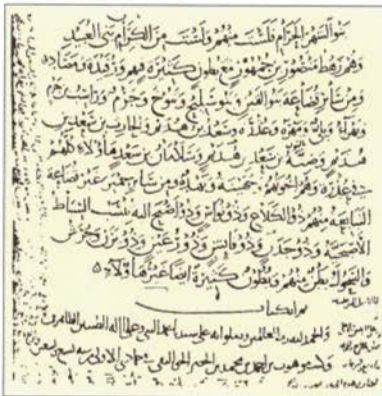 بنو الشهر الحرام فلست منهم ولست من الكرام بني العبيد
وهم رهط منصور بن جمهور مع بطون كثيرة فيهم ورفدة ومصاد
ومن سائر قضاعة بنو القين وبنو سليح وتنوخ وجرم وراسب بن جرم
وبهراء وبلي ومهرة وعذرة وسعد بن هذيم والحارث بن سعد بن
هذيم وضنة بن سعد بن هذيم وسلامان بن سعد هاؤلاء كلهم
في عذرة وهم اخوتهم جهينة ونهد ومن سائر حمير غير قضاعة
التبابعة منهم ذو الكلاع وذو نواس وذو اصبح اليه تنسب السياط
الاصبحية وذو جدن وذو فايش وذو رعين وذو يزن وجرش
والسحول بطن منهم وبطون كثيرة ايضا غير هاؤلاء
تم الكتاب
والحمد لله رب العالمين وصلواته على سيدنا محمد النبي وعلى اله الطيبين الطاهرين
وكتب موهوب بن احمد بن محمد بن الخضر الجواليقي في جمادى الاولى من سنة تسع وتسعين